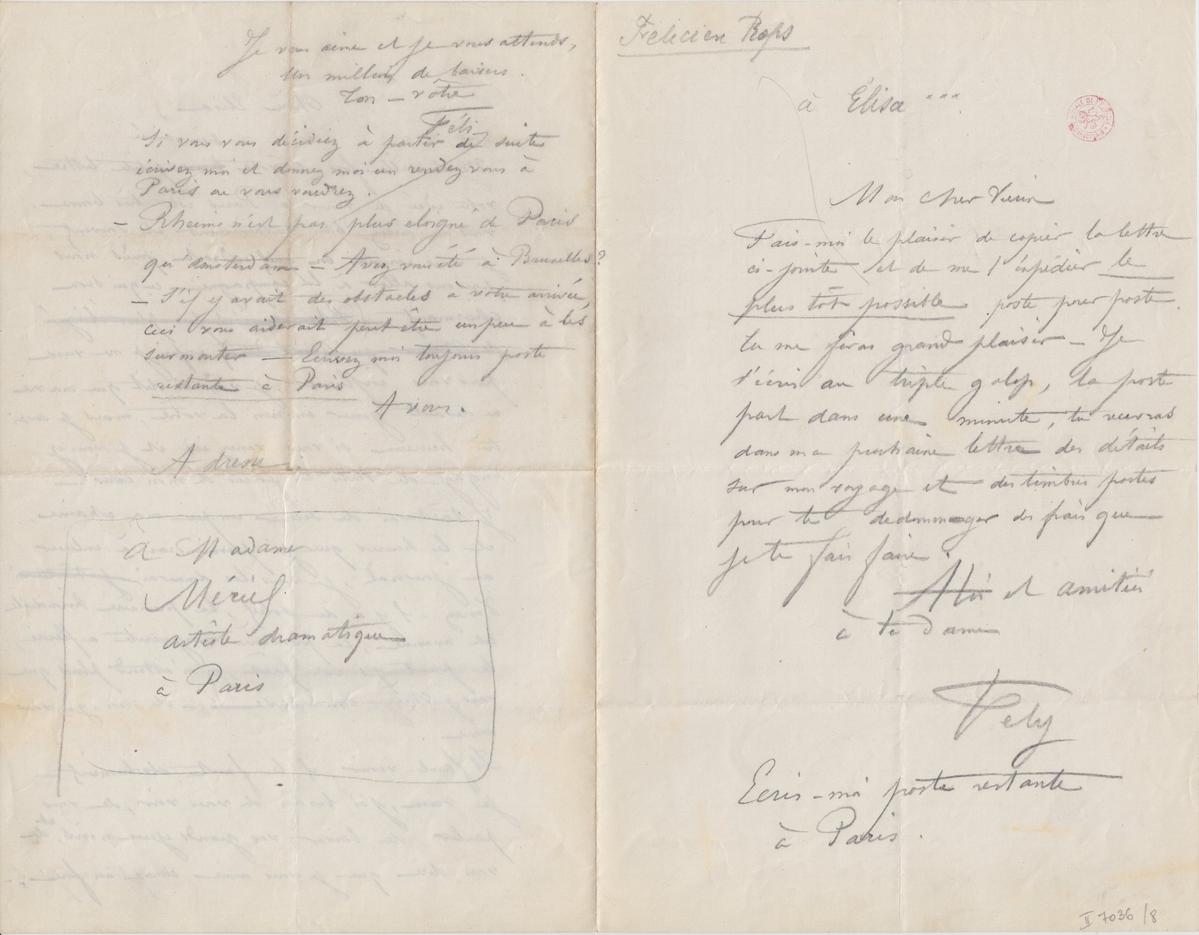 Je vous aime et je vous attends,
Un million de baisers.
Ton – vôtre
Féli
Si vous vous décidiez à partir de suite
écrivez moi et donnez moi un rendez vous à
Paris où vous voudrez.
– Rheims n'est pas plus eloigné de Paris
qu'Amsterdam – Avez vous été à Bruxelles?
– S'il y avait des obstacles à votre arrivée,
ceci vous aiderait peut être un peu à les
surmonter – Ecrivez moi toujours poste
restante à Paris
A vous.
Adresse.
à Madame
Mériel
artiste dramatique
à Paris
Félicien Rops
à Élisa ***
Mon cher Vieux
Fais-moi le plaisir de copier la lettre
ci-jointe et de me l'expédier le
plus tôt possible poste pour poste.
tu me feras grand plaisir – Je
t'écris au triple galop, la poste
part dans une minute, tu recevras
dans ma prochaine lettre des détails
sur mon voyage et des timbres postes
pour te dedommager des frais que
je te fais faire.
et amitiés
à ta Dame
Fely
Ecris-moi poste restante
à Paris.
II 7036/8